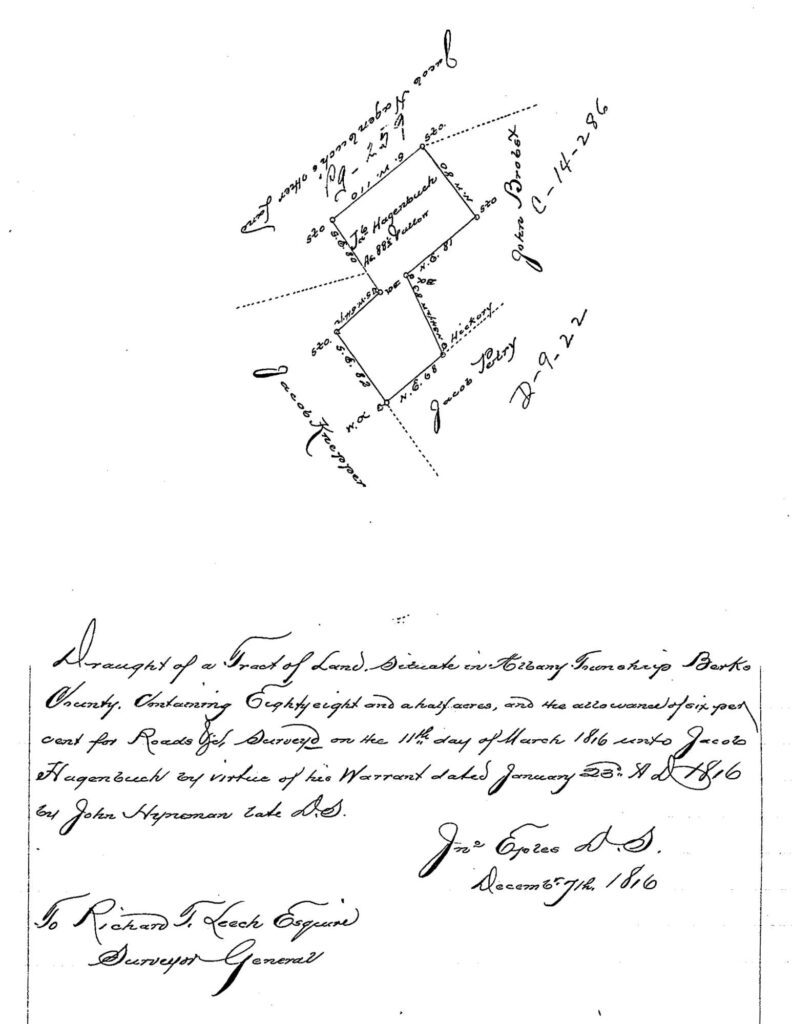 Jacob Hagenbuch's other Land
C-14-286
John Brobst
S.W. 110
szo.
N.W. 80
szo
szo
S.E. 80
Jac Hagenbuch
Ac. 88½ & allow
N.E. 81
szo.
S.E. 82
N.E. 68
Hickory
W.O.
Jacob Knepper
D-9-22
Draught of a Tract of Land, Situate in Albany Township Berks
County. Containing Eighty eight and a half acres, and the allowance of six per
cent for Roads &c, Survey'd on the 11th day of March 1816 unto Jacob
Hagenbuch by virtue of his Warrant dated January 23d A D 1816
by John Hyneman late D.S.
Jno Eples D.S.
Decembr 7th 1816
To Richard T. Leech Esquire
Surveyor General